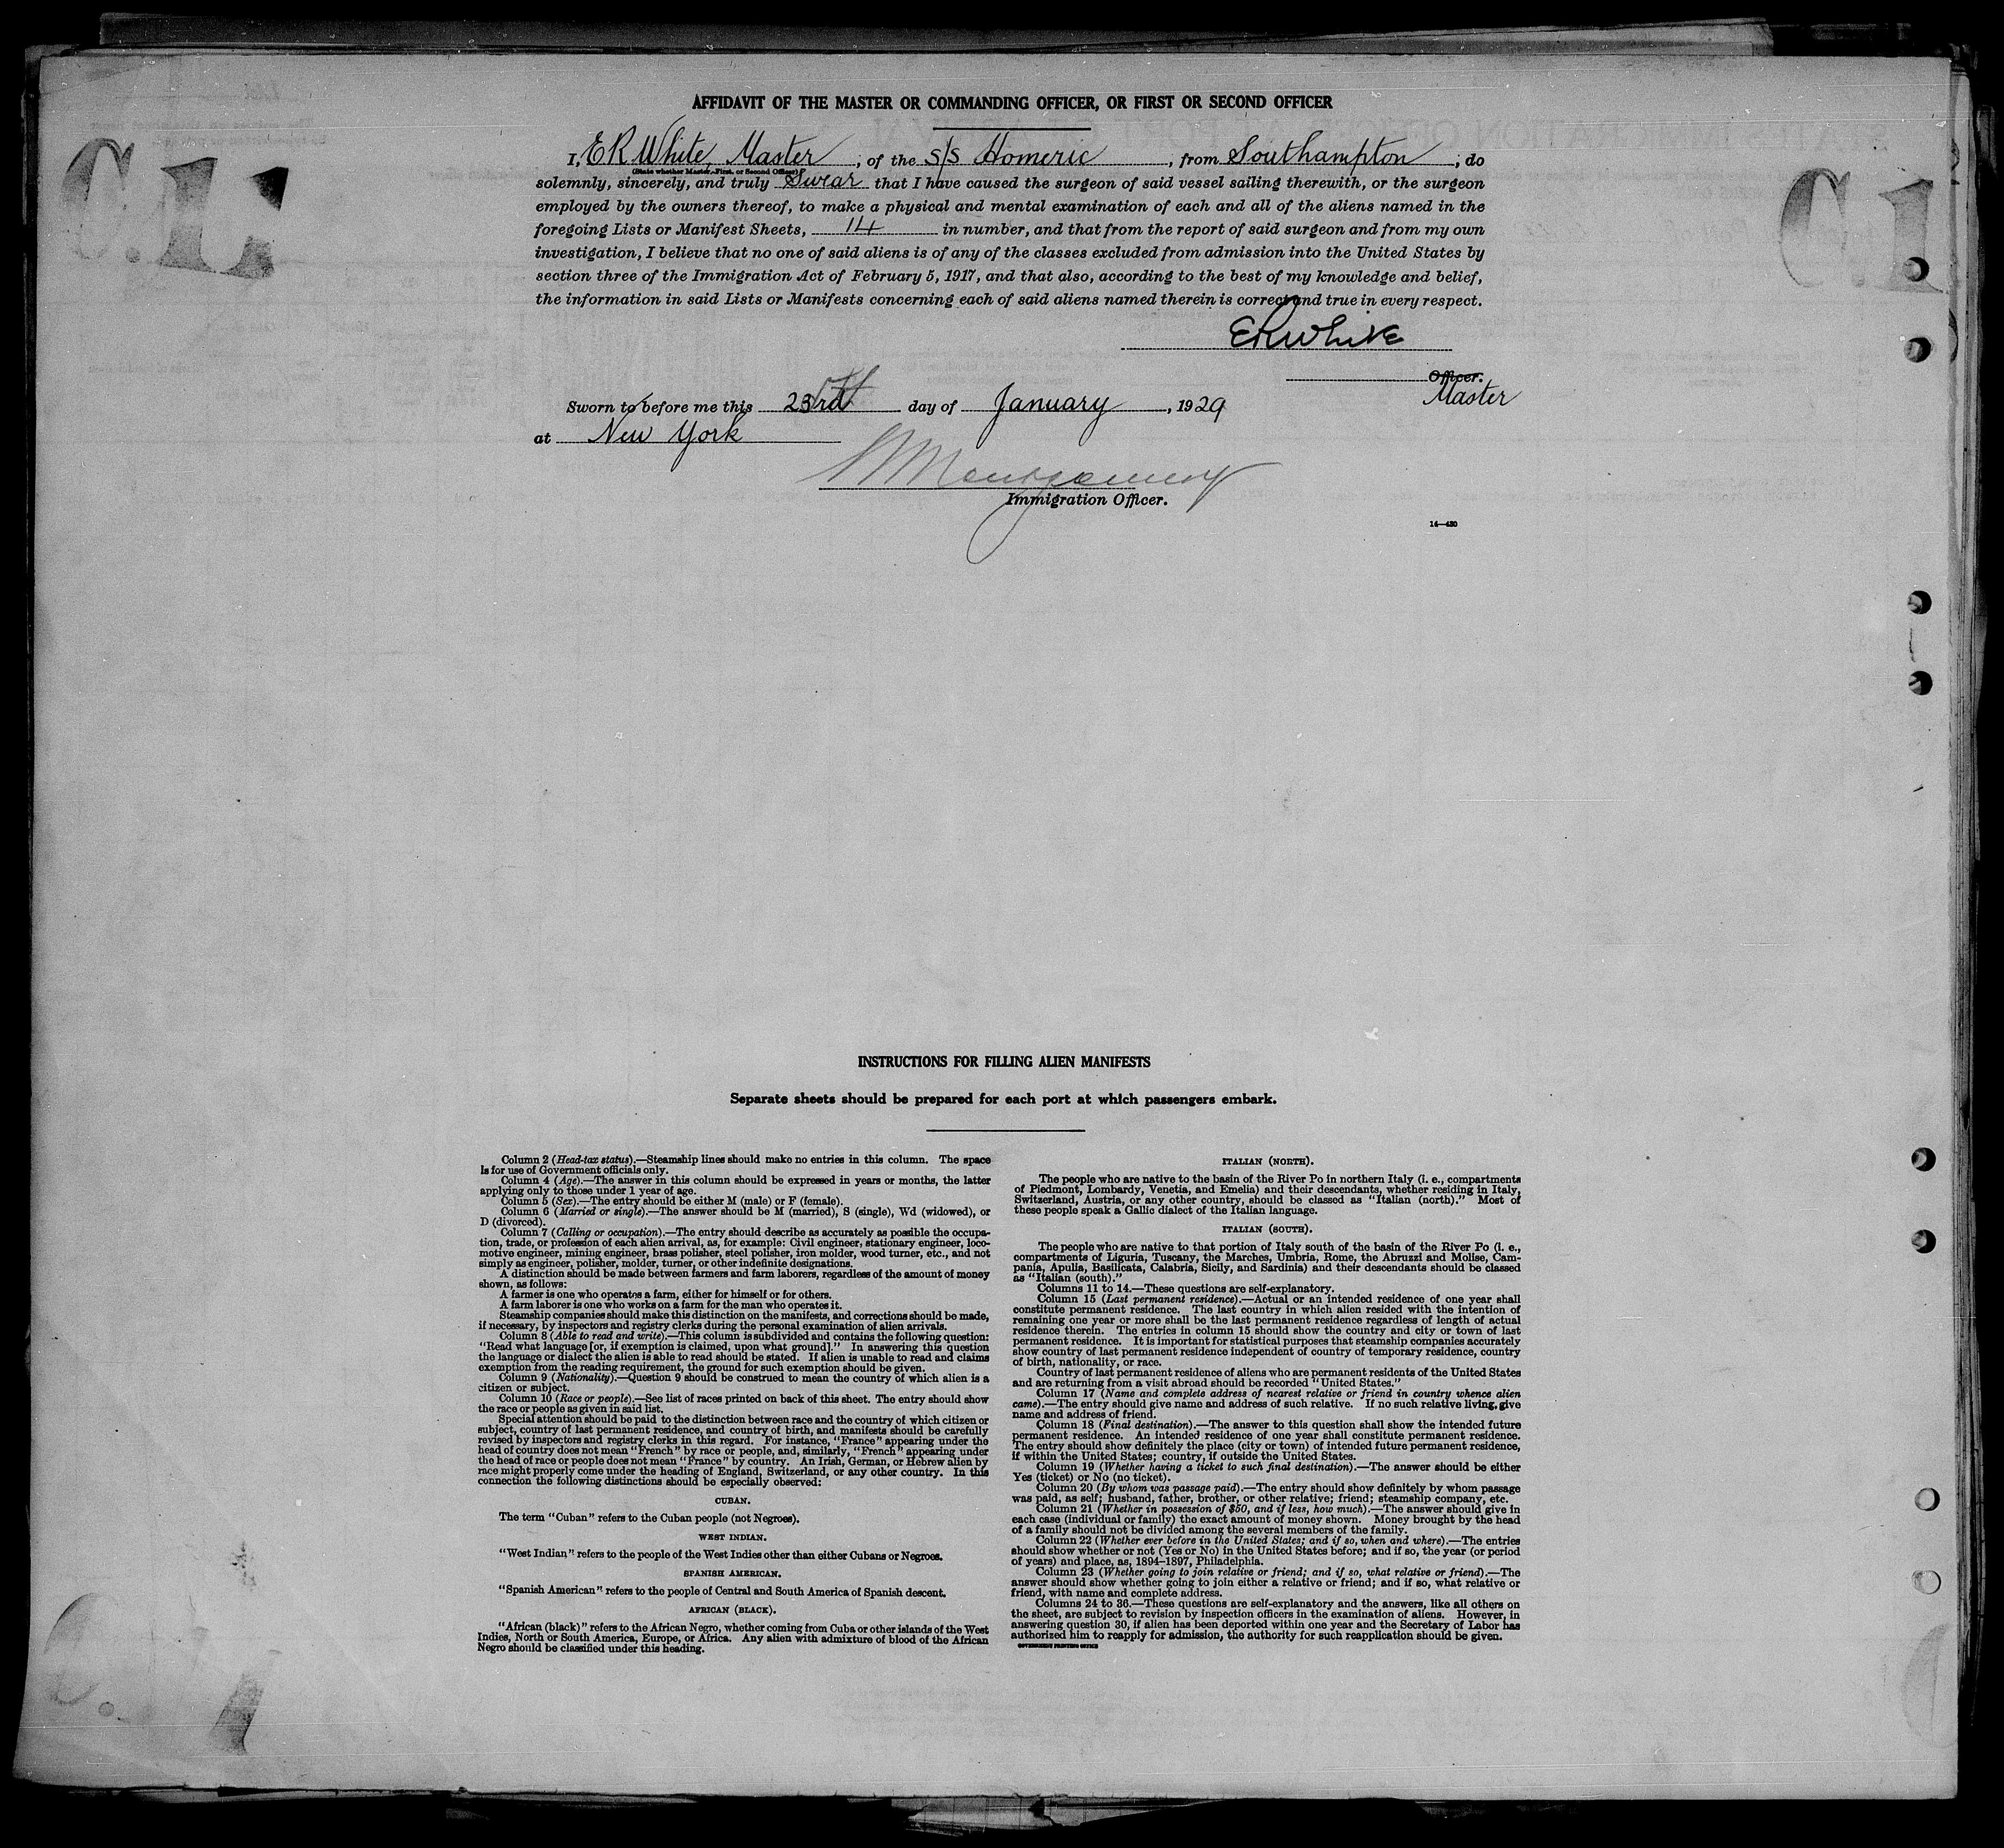 AFFIDAVIT OF THE MASTER OR COMMANDING OFFICER, OR FIRST OR SECOND OFFICER
I, E R White, Master, of the S/S Homeric, from Southampton; do
(State whether Master, First, or Second Officer)
solemnly, sincerely, and truly Swear that I have caused the surgeon of said vessel sailing therewith, or the surgeon
employed by the owners thereof, to make a physical and mental examination of each and all of the aliens named in the
foregoing Lists or Manifest Sheets, 14 in number, and that from the report of said surgeon and from my own
investigation, I believe that no one of said aliens is of any of the classes excluded from admission into the United States by
section three of the Immigration Act of February 5, 1917, and that also, according to the best of my knowledge and belief,
the information in said Lists or Manifests concerning each of said aliens named therein is correct and true in every respect.
E R White
Officer.
Master
Sworn to before me this 23rd day of January, 1929
at New York
Montgomery
Immigration Officer.
14—430
C.1.
C.1
INSTRUCTIONS FOR FILLING ALIEN MANIFESTS
Separate sheets should be prepared for each port at which passengers embark.
Column 2 (Head-tax status).—Steamship lines should make no entries in this column. The space
is for use of Government officials only.
Column 4 (Age).—The answer in this column should be expressed in years or months, the latter
applying only to those under 1 year of age.
Column 5 (Sex).—The entry should be either M (male) or F (female).
Column 6 (Married or single).—The answer should be M (married), S (single), Wd (widowed), or
D (divorced).
Column 7 (Calling or occupation).—The entry should describe as accurately as possible the occupa-
tion, trade, or profession of each alien arrival, as, for example: Civil engineer, stationary engineer, loco-
motive engineer, mining engineer, brass polisher, steel polisher, iron molder, wood turner, etc., and not
simply as engineer, polisher, molder, turner, or other indefinite designations.
A distinction should be made between farmers and farm laborers, regardless of the amount of money
shown, as follows:
A farmer is one who operates a farm, either for himself or for others.
A farm laborer is one who works on a farm for the man who operates it.
Steamship companies should make this distinction on the manifests, and corrections should be made,
if necessary, by inspectors and registry clerks during the personal examination of alien arrivals.
Column 8 (Able to read and write).—This column is subdivided and contains the following question:
"Read what language [or, if exemption is claimed, upon what ground]." In answering this question
the language or dialect the alien is able to read should be stated. If alien is unable to read and claims
exemption from the reading requirement, the ground for such exemption should be given.
Column 9 (Nationality).—Question 9 should be construed to mean the country of which alien is a
citizen or subject.
Column 10 (Race or people).—See list of races printed on back of this sheet. The entry should show
the race or people as given in said list.
Special attention should be paid to the distinction between race and the country of which citizen or
subject, country of last permanent residence, and country of birth, and manifests should be carefully
revised by inspectors and registry clerks in this regard. For instance, "France" appearing under the
head of country does not mean "French" by race or people, and, similarly, "French" appearing under
the head of race or people does not mean "France" by country. An Irish, German, or Hebrew alien by
race might properly come under the heading of England, Switzerland, or any other country. In this
connection the following distinctions should be especially observed:
CUBAN.
The term "Cuban" refers to the Cuban people (not Negroes).
WEST INDIAN.
"West Indian" refers to the people of the West Indies other than either Cubans or Negroes.
SPANISH AMERICAN.
"Spanish American" refers to the people of Central and South America of Spanish descent.
AFRICAN (BLACK).
"African (black)" refers to the African Negro, whether coming from Cuba or other islands of the West
Indies, North or South America, Europe, or Africa. Any alien with admixture of blood of the African
Negro should be classified under this heading.
ITALIAN (NORTH).
The people who are native to the basin of the River Po in northern Italy (i. e., compartments
of Piedmont, Lombardy, Venetia, and Emelia) and their descendants, whether residing in Italy,
Switzerland, Austria, or any other country, should be classed as "Italian (north)." Most of
these people speak a Gallic dialect of the Italian language.
ITALIAN (SOUTH).
The people who are native to that portion of Italy south of the basin of the River Po (i. e.,
compartments of Liguria, Tuscany, the Marches, Umbria, Rome, the Abruzzi and Molise, Cam-
pania, Apulia, Basilicata, Calabria, Sicily, and Sardinia) and their descendants should be classed
as "Italian (south)."
Columns 11 to 14.—These questions are self-explanatory.
Column 15 (Last permanent residence).—Actual or an intended residence of one year shall
constitute permanent residence. The last country in which alien resided with the intention of
remaining one year or more shall be the last permanent residence regardless of length of actual
residence therein. The entries in column 15 should show the country and city or town of last
permanent residence. It is important for statistical purposes that steamship companies accurately
show country of last permanent residence independent of country of temporary residence, country
of birth, nationality, or race.
Country of last permanent residence of aliens who are permanent residents of the United States
and are returning from a visit abroad should be recorded "United States."
Column 17 (Name and complete address of nearest relative or friend in country whence alien
came).—The entry should give name and address of such relative. If no such relative living, give
name and address of friend.
Column 18 (Final destination).—The answer to this question shall show the intended future
permanent residence. An intended residence of one year shall constitute permanent residence.
The entry should show definitely the place (city or town) of intended future permanent residence,
if within the United States; country, if outside the United States.
Column 19 (Whether having a ticket to such final destination).—The answer should be either
Yes (ticket) or No (no ticket).
Column 20 (By whom was passage paid).—The entry should show definitely by whom passage
was paid, as self; husband, father, brother, or other relative; friend; steamship company, etc.
Column 21 (Whether in possession of $50, and if less, how much).—The answer should give in
each case (individual or family) the exact amount of money shown. Money brought by the head
of a family should not be divided among the several members of the family.
Column 22 (Whether ever before in the United States; and if so, when and where).—The entries
should show whether or not (Yes or No) in the United States before; and if so, the year (or period
of years) and place, as, 1894–1897, Philadelphia.
Column 23 (Whether going to join relative or friend; and if so, what relative or friend).—The
answer should show whether going to join either a relative or friend; and if so, what relative or
friend, with name and complete address.
Columns 24 to 36.—These questions are self-explanatory and the answers, like all others on
the sheet, are subject to revision by inspection officers in the examination of aliens. However, in
answering question 30, if alien has been deported within one year and the Secretary of Labor has
authorized him to reapply for admission, the authority for such reapplication should be given.
GOVERNMENT PRINTING OFFICE